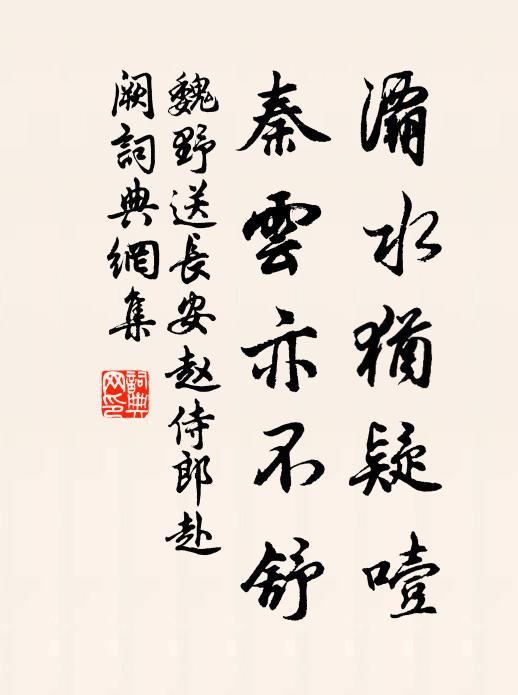 灞水猶疑噎
秦雲亦不舒
魏野送長安赵侍郎赴
闕詞典網集
詞典
网印